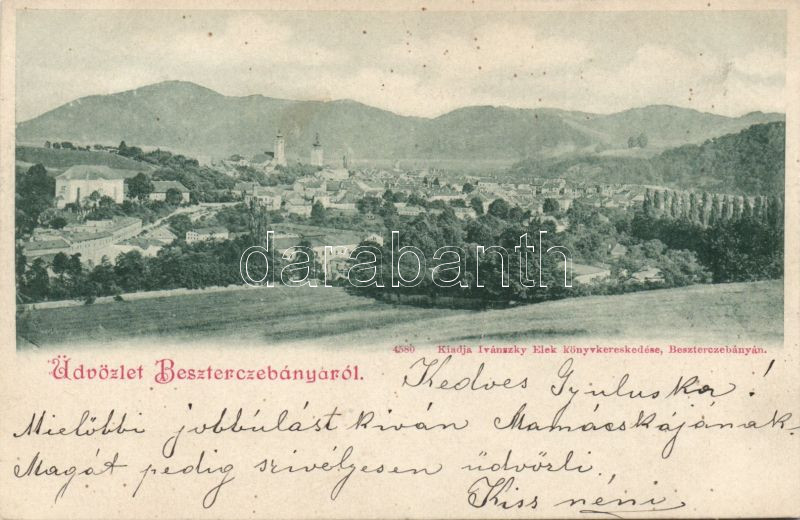 darabanth
4580 Kiadja Ivánszky Elek könyvkereskedése, Beszterczebányán.
Üdvözlet Beszterczebányáról.
Kedves Gyuluska!
Mielőbbi jobbúlást kiván Mamácskájának.
Magát pedig szivélyesen üdvözli
Kiss néni